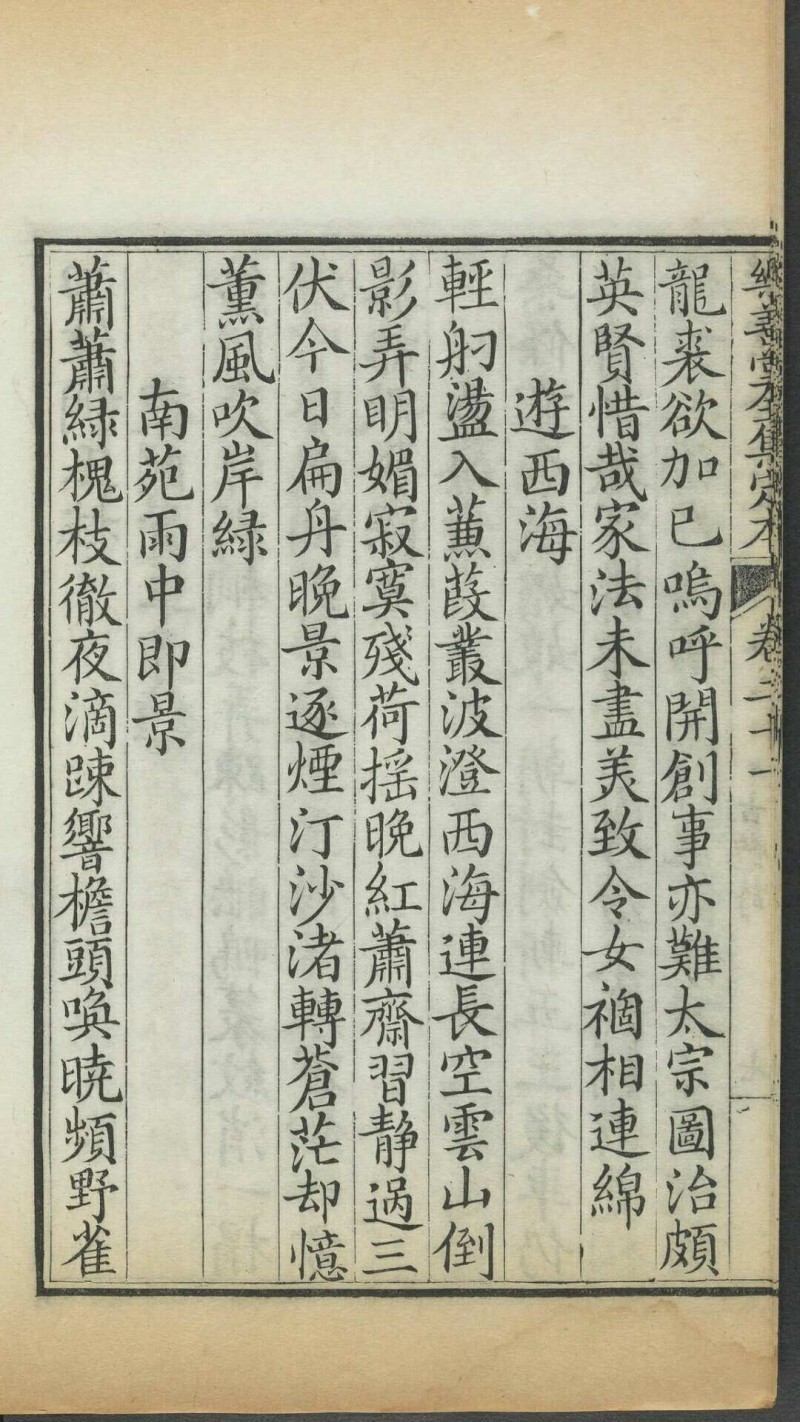 樂善堂全集定本 卷二十一
龍裘欲加已嗚呼開創事亦難太宗圖治頗
英賢惜哉家法未盡美致令女禍相連綿
遊西海
輕舠盪入蒹葭叢波澄西海連長空雲山倒
影弄明媚寂寞殘荷揺晚紅蕭齋習静過三
伏今日扁舟晚景逐煙汀沙渚轉蒼茫却憶
薰風吹岸緑
南苑雨中即景
蕭蕭緑槐枝徹夜滴踈響檐頭喚曉頻野雀